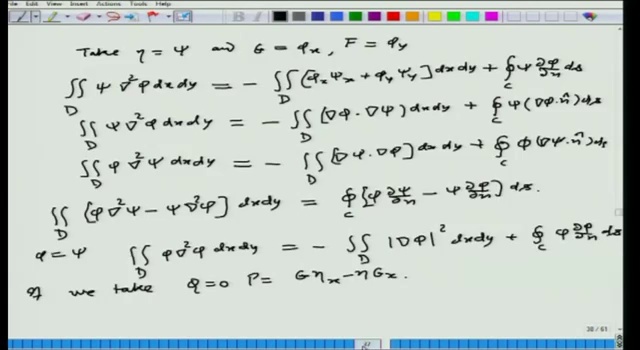 Edit View Insert Actions Tools Help
Take η = ψ and G = φ_x, F = φ_y
∬_D ψ ∇²φ dxdy = − ∬_D [φ_x ψ_x + φ_y ψ_y] dxdy + ∮_C ψ ∂φ/∂n ds
∬_D ψ ∇²φ dxdy = − ∬_D (∇φ · ∇ψ) dxdy + ∮_C ψ (∇φ · n̂) ds
∬_D φ ∇²ψ dxdy = − ∬_D [∇ψ · ∇φ] dxdy + ∮_C φ (∇ψ · n̂) ds
∬_D [φ ∇²ψ − ψ ∇²φ] dxdy = ∮_C [φ ∂ψ/∂n − ψ ∂φ/∂n] ds.
φ = ψ ∬_D φ ∇²φ dxdy = − ∬_D |∇φ|² dxdy + ∮_C φ ∂φ/∂n ds
If we take Q = 0 P = Gη_x − ηG_x.